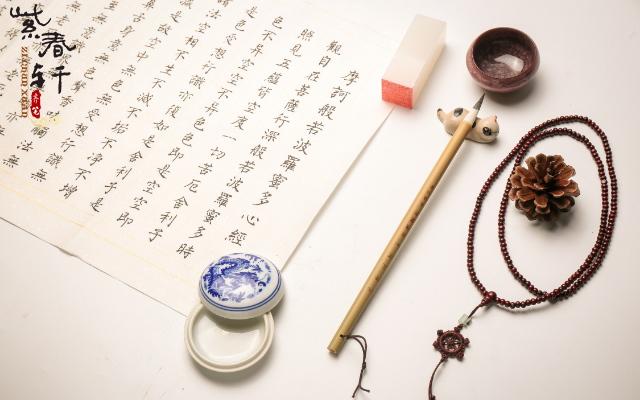 紫春轩
ZICHUN XUAN
摩訶般若波羅蜜多心經
觀自在菩薩行深般若波羅蜜多時
照見五蘊皆空度一切苦厄舍利子
色不異空空不異色色即是空空即
是色受想行識亦復如是舍利子是
諸法空相不生不滅不垢不淨不增
是故空中無色無受想行識無
鼻舌身意無色聲香味觸法無